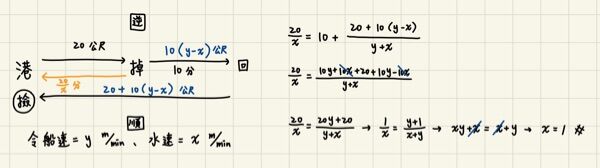 逆
20 公尺
10(y-x)公尺
港
掉
10 分
回
20/x 分
撿
20+10(y-x) 公尺
順
令船速=y m/min、水速=x m/min
20/x = 10 + (20+10(y-x))/(y+x)
20/x = (10y+10x+20+10y-10x)/(y+x)
20/x = (20y+20)/(y+x) → 1/x = (y+1)/(x+y) → xy+x = x+y → x=1 #